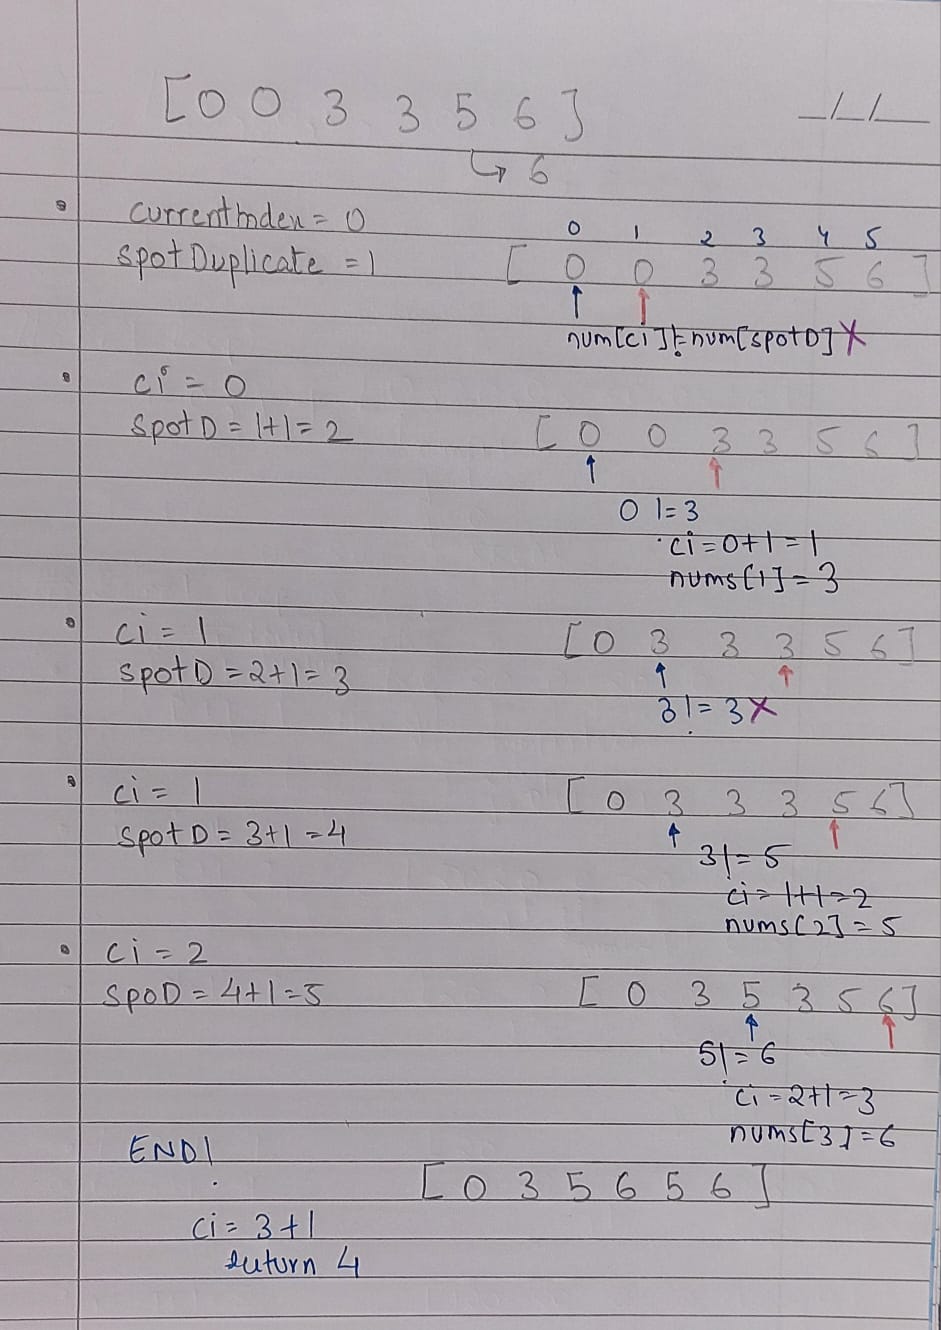 [0 0 3 3 5 6]
_/_/__
↳ 6
currentIndex = 0
spotDuplicate = 1
0 1 2 3 4 5
[ 0 0 3 3 5 6 ]
↑ ↑
num[ci] != num[spotD] X
ci = 0
spotD = 1+1 = 2
[ 0 0 3 3 5 6 ]
↑ ↑
0 != 3
ci = 0+1 = 1
nums[1] = 3
ci = 1
spotD = 2+1 = 3
[0 3 3 3 5 6]
↑ ↑
3 != 3 X
ci = 1
spotD = 3+1 = 4
[ 0 3 3 3 5 6]
↑ ↑
3 != 5
ci = 1+1 = 2
nums[2] = 5
ci = 2
spoD = 4+1 = 5
[ 0 3 5 3 5 6]
↑ ↑
5 != 6
ci = 2+1 = 3
nums[3] = 6
END!
[ 0 3 5 6 5 6 ]
ci = 3+1
return 4